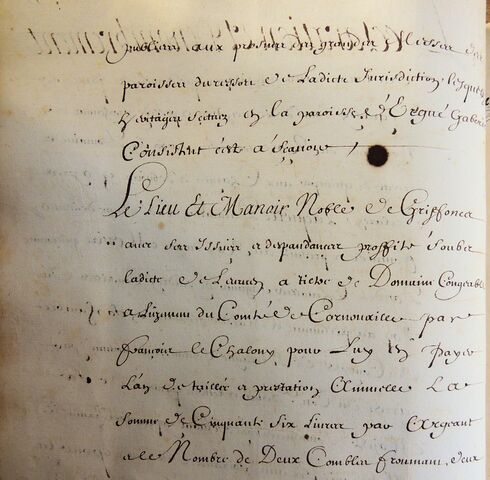 publiées aux prosnes des grandes Messes des
paroisses du ressort de Ladicte Jurisdiction, lesquels
heritages scitués en la paroisse d'Ergué Gaberic
Consistent c'est a scavoir
Le Lieu Et Manoir Noble de Griffonez
avec ses Issues et despandances proffité soubz
ladicte de a tiltre de Domaine Congeable
a Luzemen du Comté de Cornouaille par
francois le Chalony pour Luy En payer
Lan de taillée et prestation Annuelle La
somme de Cinquante Six Livres par Argeant
et le Nombre de Deux Combles froumant, deux